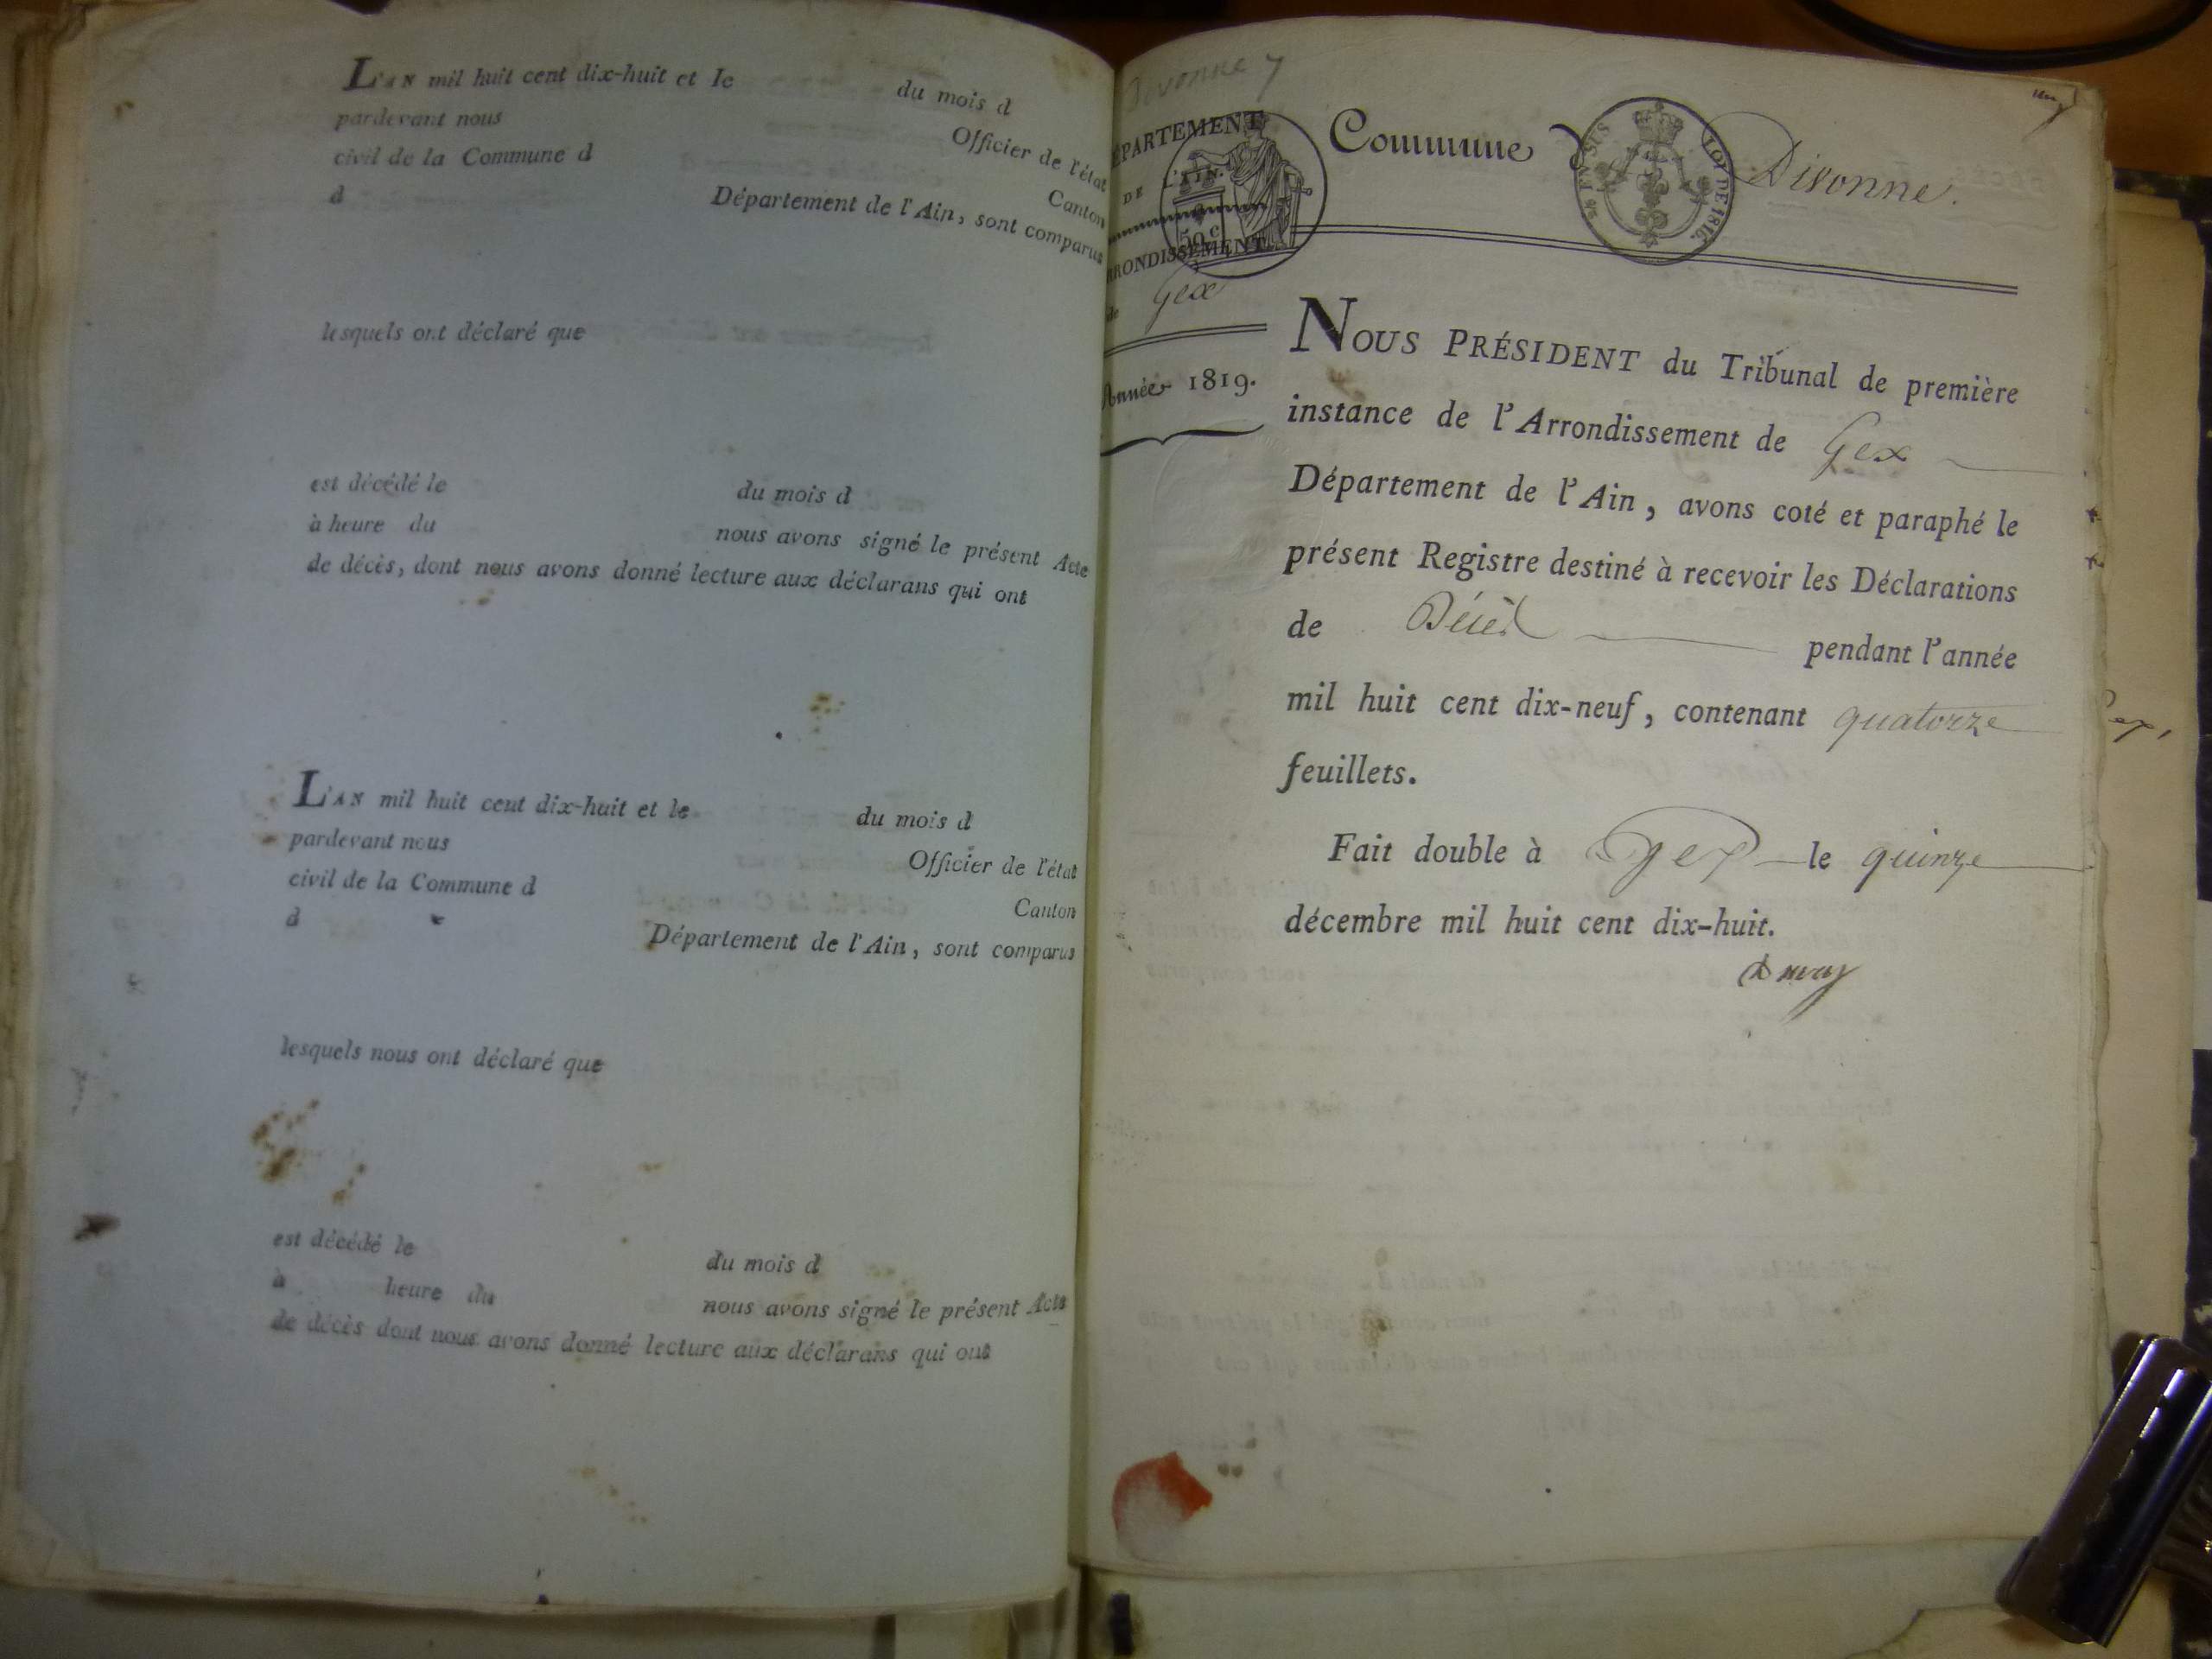 L'AN mil huit cent dix-huit et le du mois d
pardevant nous Officier de l'état
civil de la Commune d Canton
d Département de l'Ain, sont comparus
lesquels ont déclaré que
est décédé le du mois d
à heure du nous avons signé le présent Acte
de décès, dont nous avons donné lecture aux déclarans qui ont
L'AN mil huit cent dix-huit et le du mois d
pardevant nous Officier de l'état
civil de la Commune d Canton
d Département de l'Ain, sont comparus
lesquels nous ont déclaré que
est décédé le du mois d
à heure du nous avons signé le présent Acte
de décès dont nous avons donné lecture aux déclarans qui ont
Divonne 7
DÉPARTEMENT
DE L'AIN.
ARRONDISSEMENT
de Gex
Année 1819.
50 c
Commune d Divonne.
LOI DE 1816.
NOUS PRÉSIDENT du Tribunal de première
instance de l'Arrondissement de Gex
Département de l'Ain, avons coté et paraphé le
présent Registre destiné à recevoir les Déclarations
de Décès pendant l'année
mil huit cent dix-neuf, contenant quatorze
feuillets.
Fait double à Gex le quinze
décembre mil huit cent dix-huit.